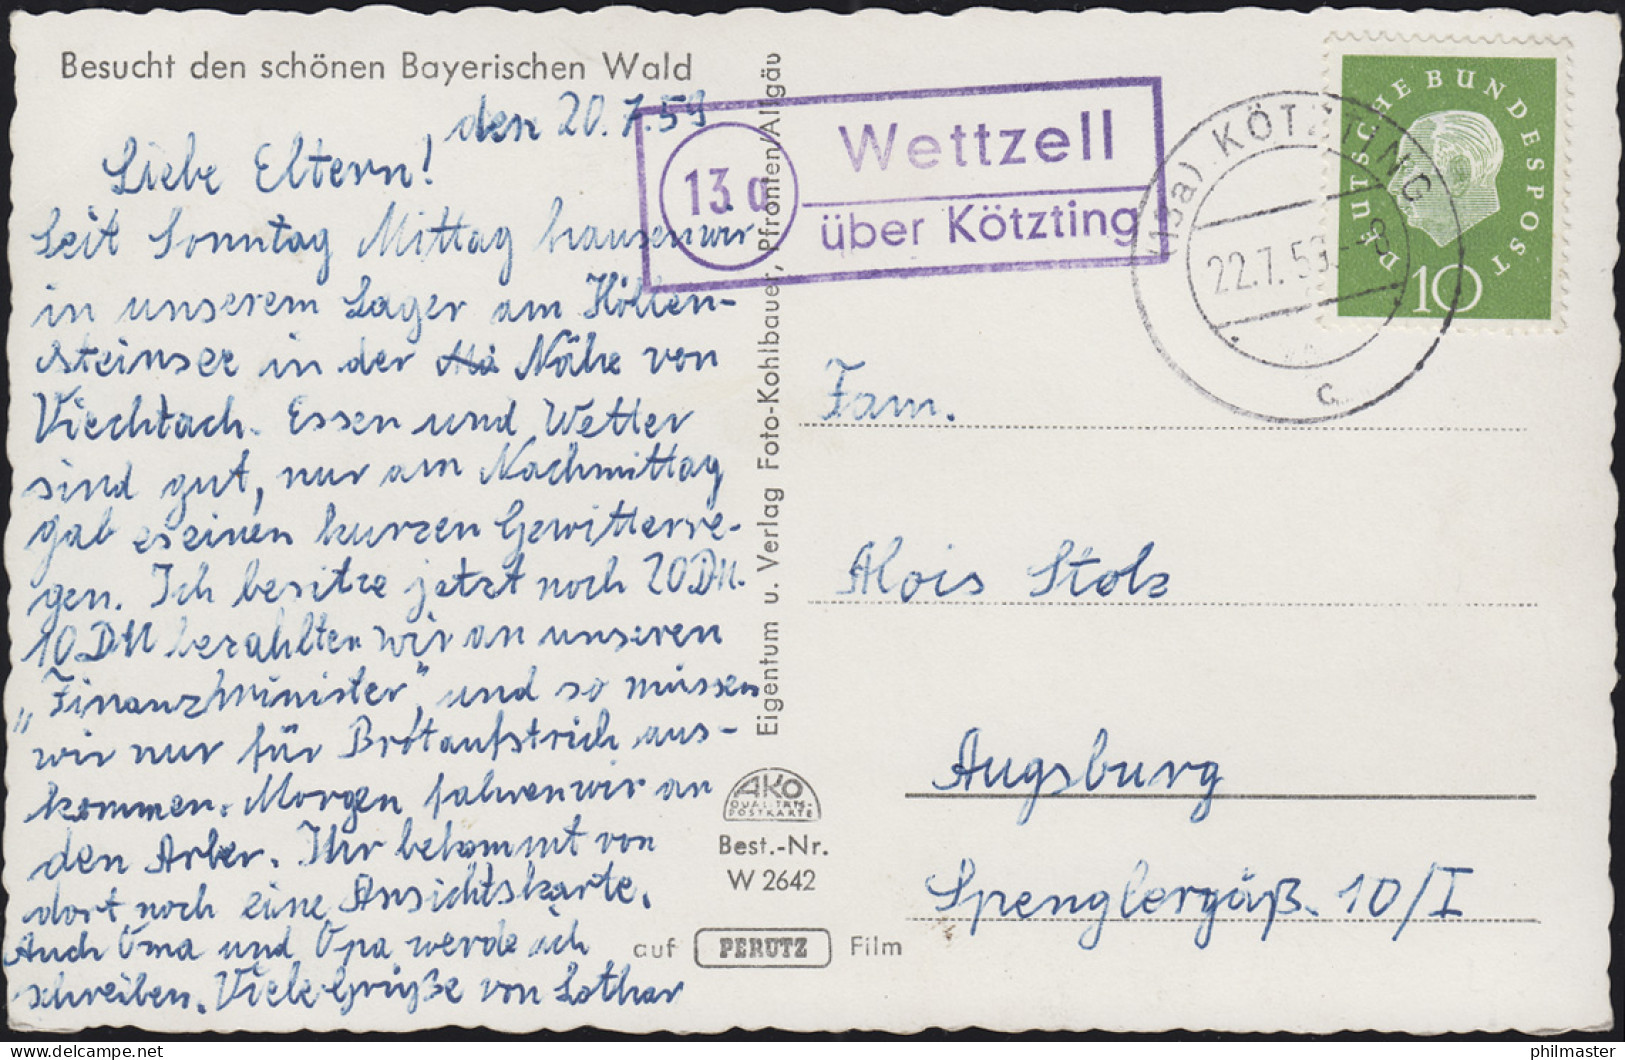 Besucht den schönen Bayerischen Wald
den 20.7.59
Liebe Eltern!
Seit Sonntag Mittag hausen wir
in unserem Lager am Höllen-
steinsee in der Nähe von
Viechtach. Essen und Wetter
sind gut, nur am Nachmittag
gab es einen kurzen Gewitterre-
gen. Ich besitze jetzt noch 20 DM.
10 DM bezahlten wir an unseren
„Finanzminister", und so müssen
wir nur für Brotaufstrich aus-
kommen. Morgen fahren wir an
den Arber. Ihr bekommt von
dort noch eine Ansichtskarte.
Auch Oma und Opa werde ich
schreiben. Viele Grüße von Lothar
Eigentum u. Verlag Foto-Kohlbauer, Pfronten/Allgäu
AKO
QUALITÄTS-
POSTKARTE
Best.-Nr.
W 2642
auf PERUTZ Film
13a
Wettzell
über Kötzting
(13a) KÖTZTING
22.7.59
c
DEUTSCHE BUNDESPOST
10
Fam.
Alois Stolz
Augsburg
Spenglergäß. 10/I
philmaster